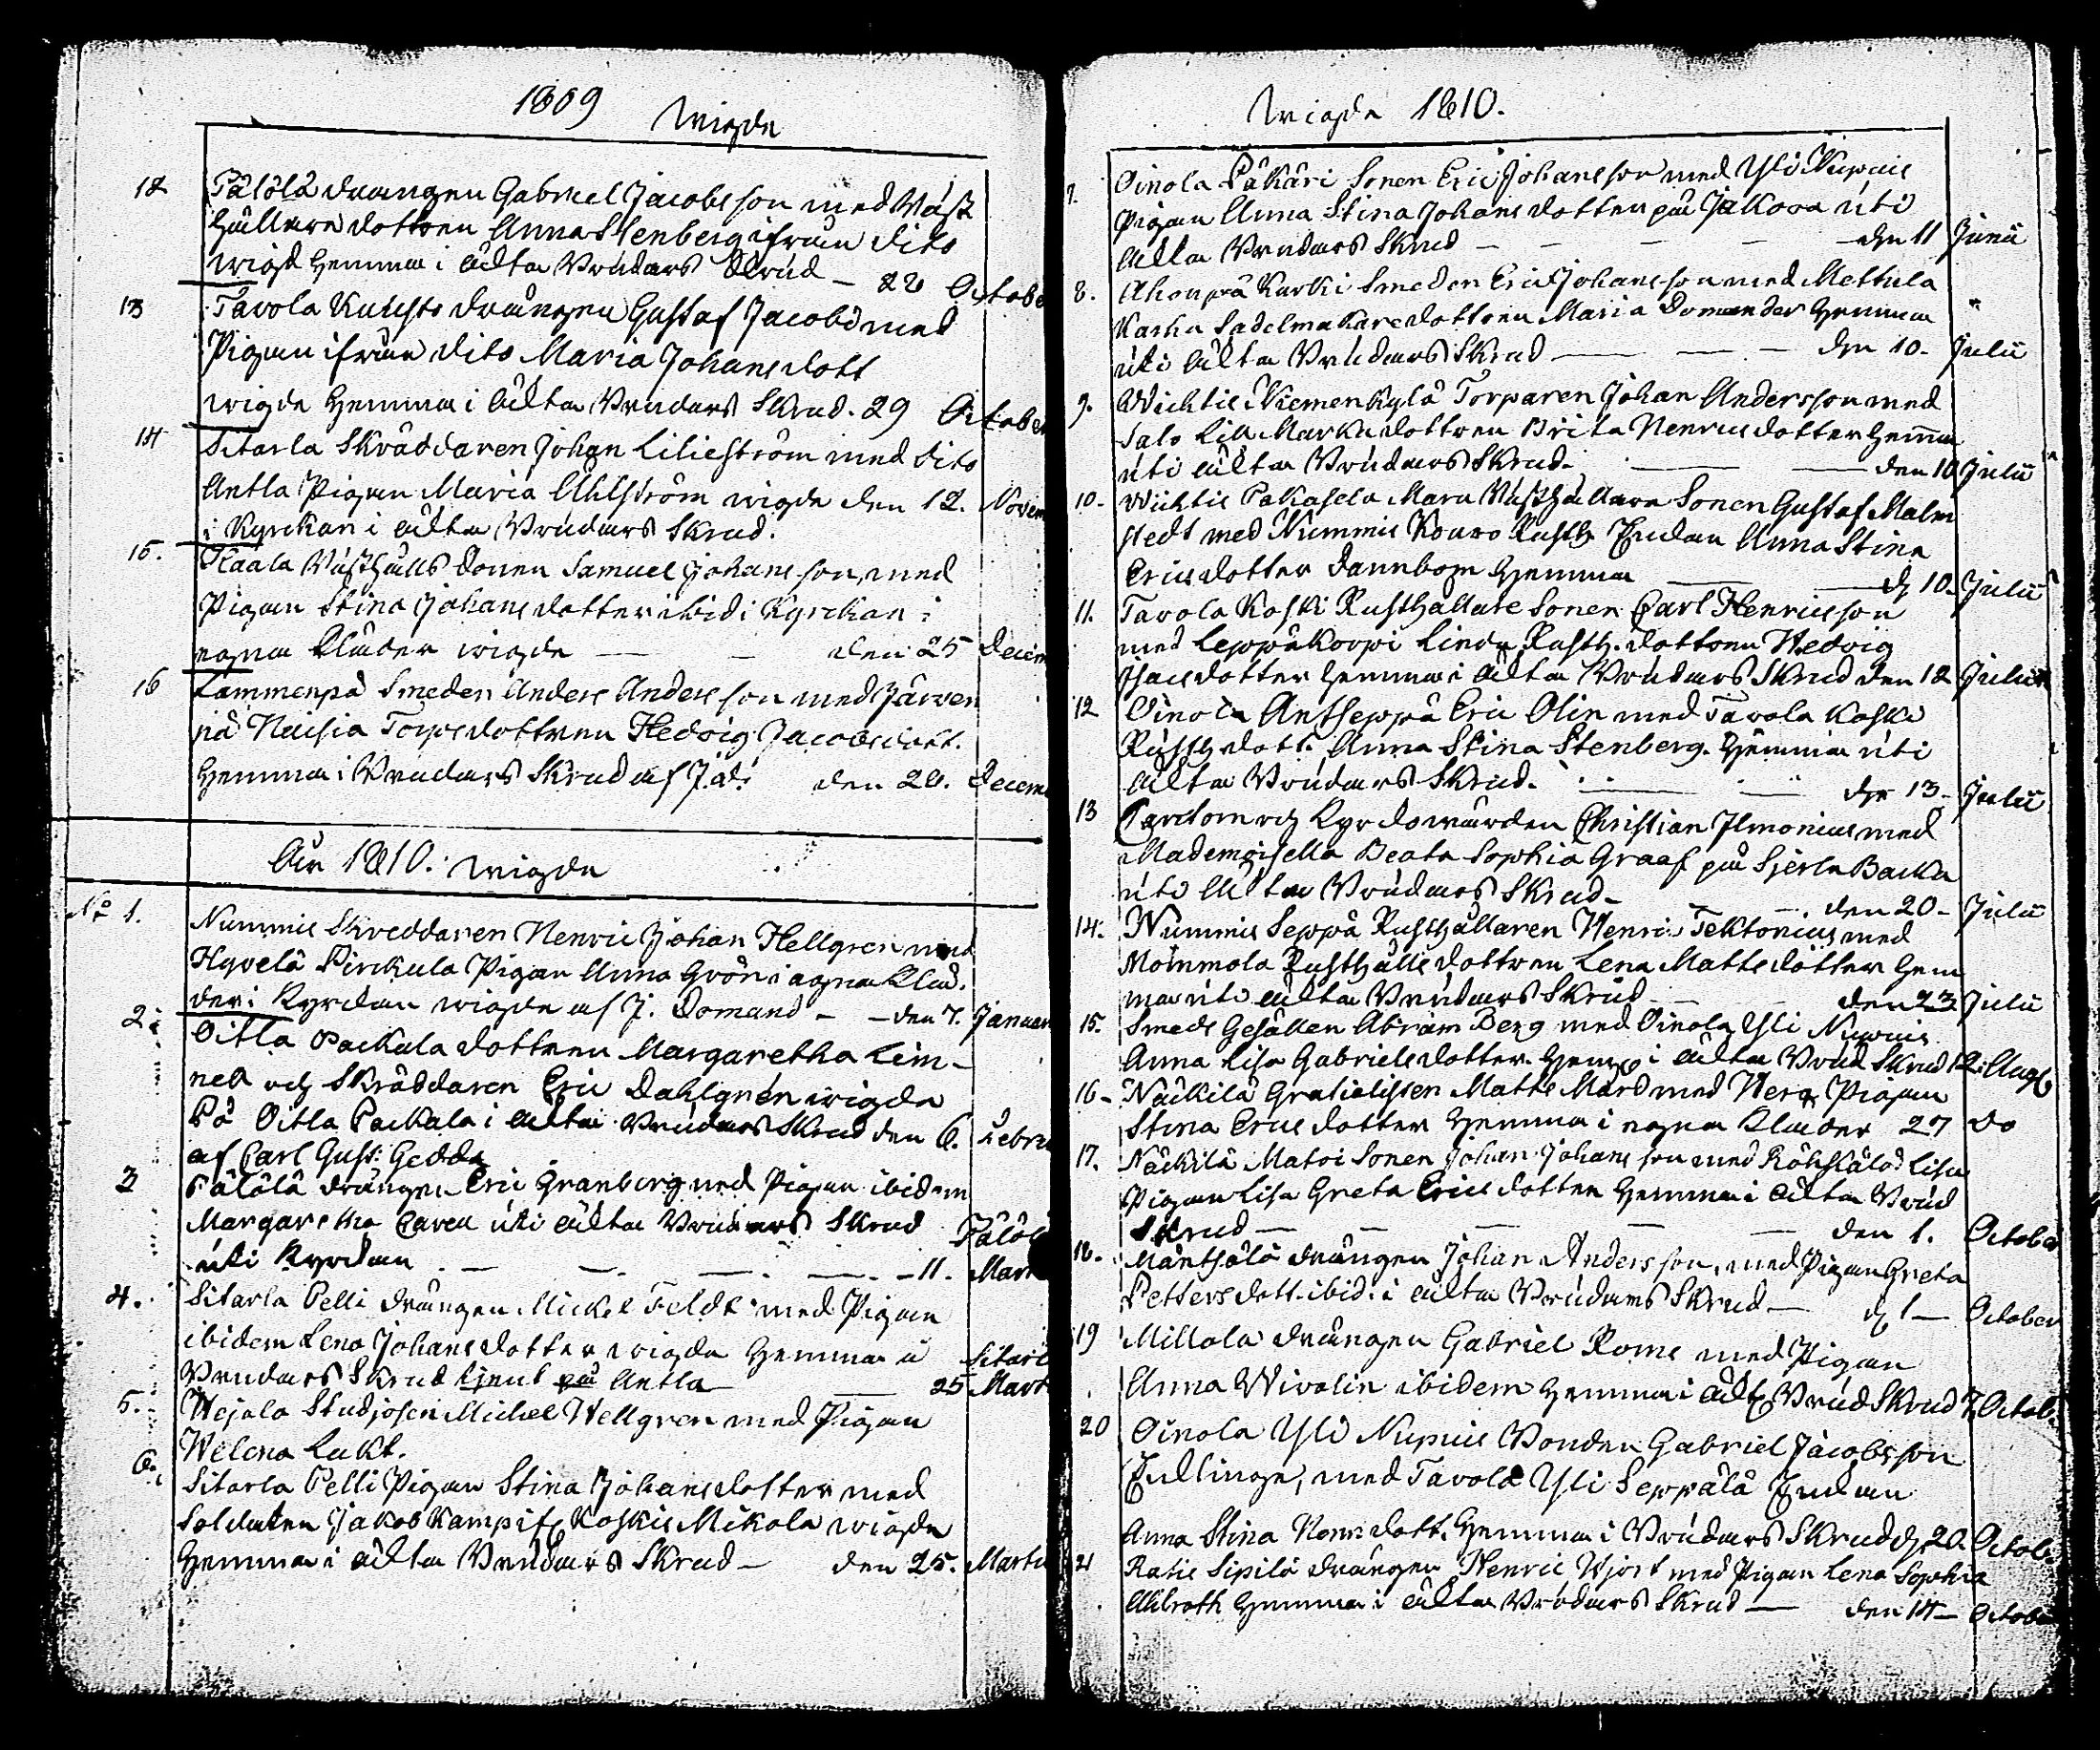 1809 Wigde
12 Pälölä drängen Gabriel Jacobsson med Rust
hållare dottren Anna Stenberg ifrån dito
wigd hemma i ächta Brudars Skrud – 22 October
13 Tavola drängen Gustaf Jacobs med
Pigan ifrån dito Maria Johansdott
wigde hemma i ächta Brudars Skrud. 29 October
14 Sitarla Skräddaren Johan Lilieström med dito
Antla Pigan Maria Ahlström wigde den 12. Novem
i Kyrckan i ächta Brudars Skrud.
15. Haala Rusthålls Sonen Samuel Johansson, med
Pigan Stina Johansdotter ibid i Kyrckan i
egna Kläder wigde — — den 25 Decem
16 Lammenpä Smeden Anders Andersson med Järven
pä Torpsdottren Hedvig Jacobsdott.
hemma i Brudars Skrud af den 26. Decem
År 1810. Wigde
No 1. Nummis Skreddaren Henric Johan Hellgren med
Hyvelä Pirckula Pigan Anna Grön i egna Klä-
der i Kyrckan wigde af J. Domand – – den 7. Januar
2: Oitla Packala dottren Margaretha Lim-
nell och Skräddaren Eric Dahlgren wigde
På Oitla Packala i ächta Brudars Skrud den 6. Febru
af Carl Gust: Gedda
3 Pälölä drängen Eric Granberg med Pigan ibidem
Margaretha Caren uti ächta Brudars Skrud Pälöl
uti Kyrckan. — — — — – 11. Mart
4. Sitarla Pelli drängen Mickel Feldt med Pigan
ibidem Lena Johansdotter wigde hemma i Sitarl
Brudars Skrud tjent på Antla — 25 Mart
5. Hejala Studjosen Michel Hellgren med Pigan
Helena Lukt.
6. Sitarla Pelli Pigan Stina Johansdotter med
Soldaten Jacob Kampif Koskis Mikola wigde
hemma i ächta Brudars Skrud – den 25. Martii
Wigde 1810.
7. Oinola Päkäri Sonen Eric Johansson med Yli Nupuis
Pigan Anna Stina Johansdotter på Jakova uti
ächta Brudars Skrud – – – – den 11 Junii
8. Ahonpä Kurki Smeden Eric Johansson med Mettula
Karka Sadelmakaredottren Maria Domander hemma
uti ächta Brudars Skrud — — – den 10. Julii
9. Wichtis Niemenkylä Torparen Johan Andersson med
Salo Lill Marku dottren Brita Henricsdotter hemma
uti ächta Brudars Skrud. — — den 10 Julii
10. Wichtis Pakasela Maru Rusthållare Sonen Gustaf Malm
stedt med Nummis Kouvo Rusth. Enckan Anna Stina
Ericsdotter Dannbom hemma — — d 10. Julii
11. Tavola Koski Rusthållare Sonen Carl Henricsson
med Leppäkorpi Linda Rusth. dottren Hedvig
Isacsdotter hemma i ächta Brudars Skrud den 12 Julii
12 Oinola Antseppä Eric Olin med Tavola Koski
Rusth dott. Anna Stina Stenberg. hemma uti
ächta Brudars Skrud. — — den 13. Julii
13 Christian Ilmonius med
Mademoisella Beata Sophia Graaf på Sjerla Backa
uti ächta Brudars Skrud – – –. den 20. Julii
14. Nummis Seppä Rusthållaren Henric Tektonius med
Mommola Rusthålls dottren Lena Mattsdotter hem
ma uti ächta Brudars Skrud – – den 23 Julii
15. Smeds Gesällen Abram Berg med Oinola Yli Nupuis
Anna Lisa Gabrielsdotter. hem i ächta Brud Skrud 12. Aug
16. Näckilä Gratialisten Matts Mård med Pigan
Stina Ericsdotter hemma i egna Kläder 27 do
17. Näckilä Matoi Sonen Johan Johansson med Röhkälä Lisu
Pigan Lisa Greta Ericsdotter hemma i ächta Brud
Skrud — — — — — den 1. October
18. Mäntsälä drängen Johan Andersson, med Pigan Greta
Pettersdott. ibid. i ächta Brudars Skrud — d 1 — October
19 Millola drängen Gabriel Roms med Pigan
Anna Wivolin ibidem hemma i ächt Brud Skrud 7 Octob.
20 Oinola Yli Nupuis Bonden Gabriel Jacobsson
Encklinge, med Tavola Yli Seppälä Enckan
Anna Stina dott. hemma i Brudars Skrud d. 20. Octob.
21 Ratis Sipilä drängen Henric Hjort med Pigan Lena Sophia
Ahlroth hemma i ächta Brudars Skrud — den 14 — October